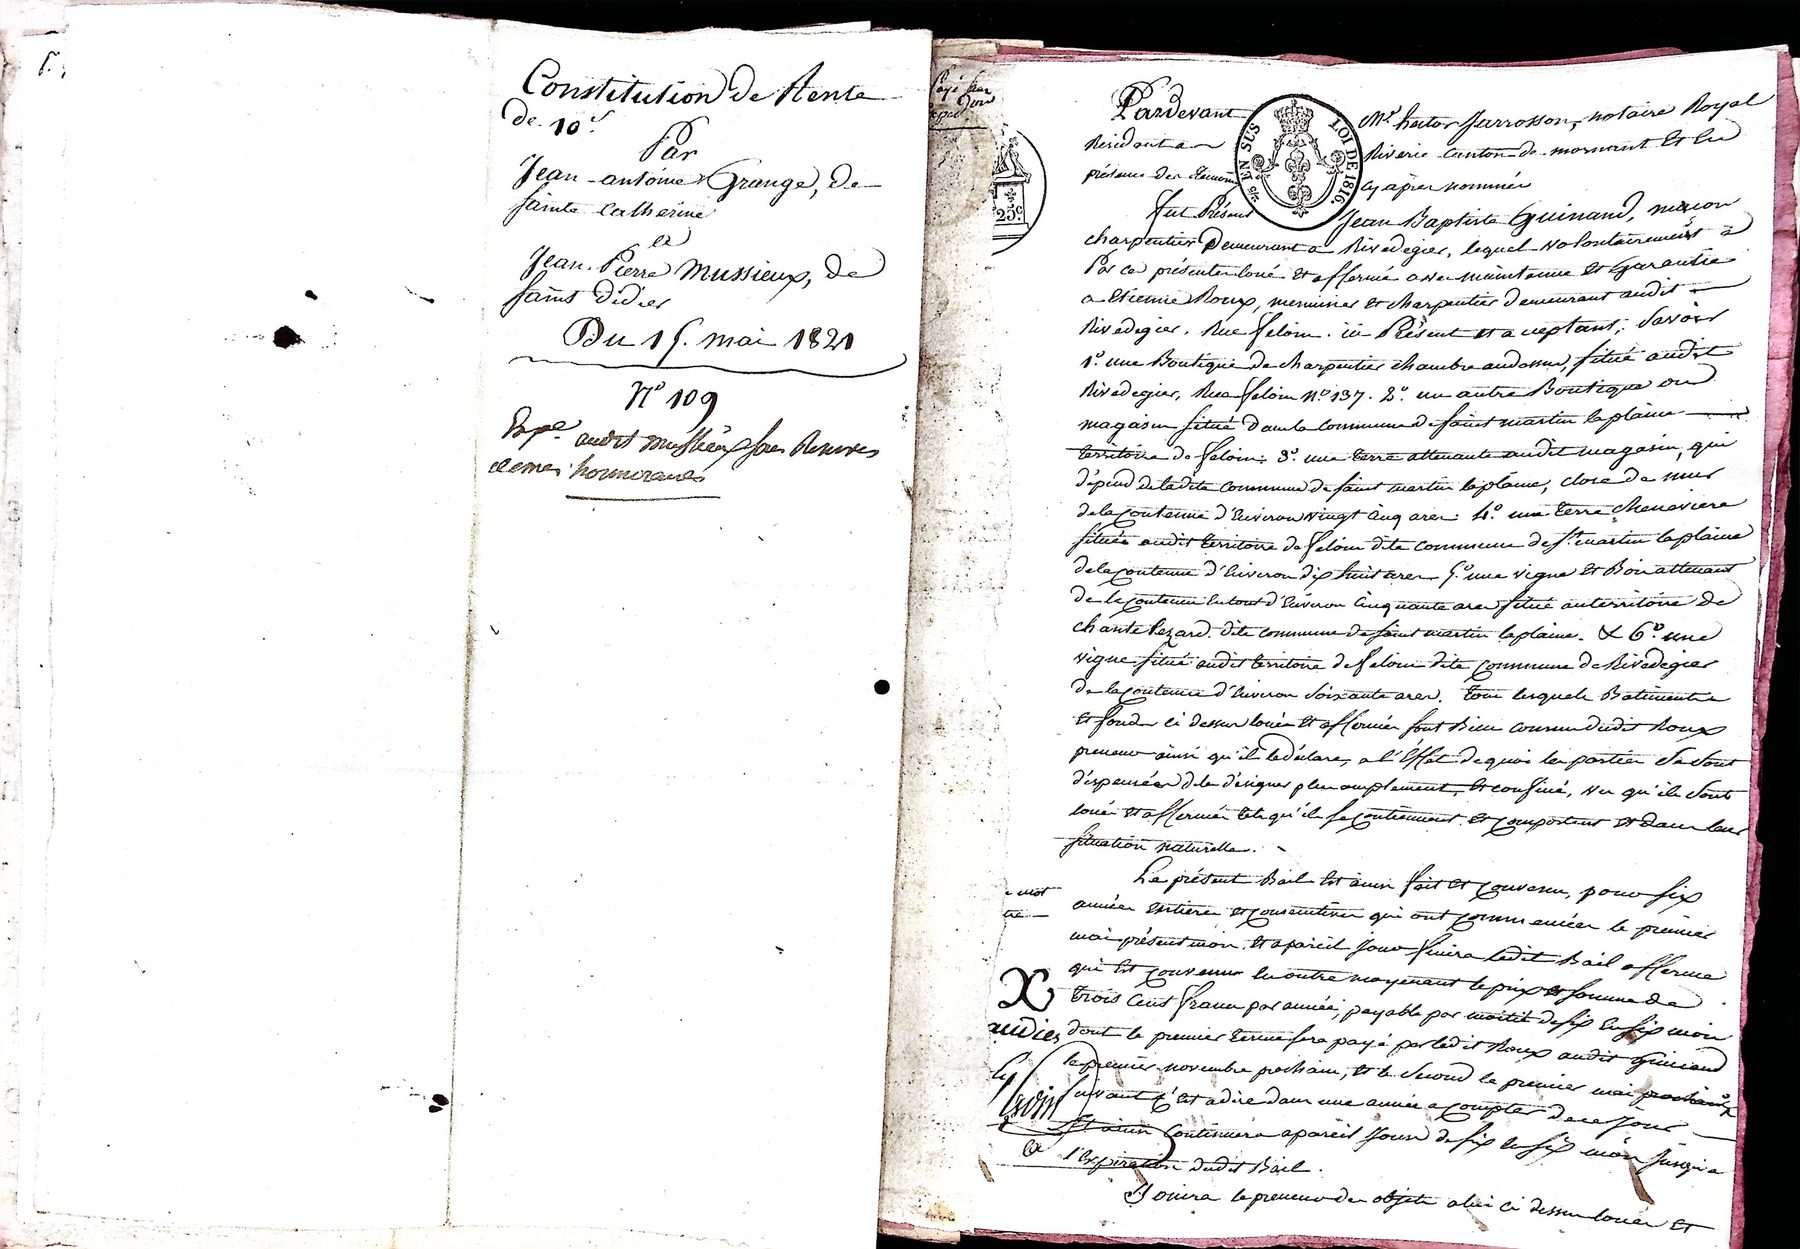 Constitution de Rente
de 10f.
Par
Jean-antoine Grange, de
sainte Catherine
et
Jean-Pierre Mussieux, de
saint Didier
Du 15. mai 1821
N° 109
audit Mussieux sans Renvois
honnoraires
Pardevant Mre. hector Jarrosson, notaire Royal
Résidant à Riverie canton de mornant Et En
présence des témoins cy après nommés
EN SUS LOI DE 1816.
25c
Fut Présent Jean Baptiste Guinand, maçon
charpentier Demeurant a Rivedegier, lequel volontairement a
Par ce présente loué et affermé avec maintenue et Garantie
a Etienne Roux, menuisier et charpentier demeurant audit
Rivedegier. Rue feloin. ici Présent et acceptant; Savoir
1.° une Boutique de charpentier chambre audessus, situé audit
Rivedegier, Rue feloin N.° 137. 2.° un autre Boutique ou
magasin situé dans la Commune de saint martin laplaine
territoire de feloin. 3.° une terre attenante audit magasin, qui
dépend deladite commune de saint martin laplaine, close de murs
dela contenue d'Environ vingt cinq ares. 4.° une terre cheneviere
située audit territoire de feloin dite commune de St. martin laplaine
dela contenue d'Environ dix huit ares. 5.° une vigne et Bois attenant
de la contenue Entout d'Environ Cinquante ares situé auterritoire de
chante lezard. dite commune de saint martin laplaine. & 6.° une
vigne situé audit territoire de feloin dite commune de Rivedegier
de la contenue d'Environ Soixante ares. tous lesquels Batiments
et fonds ci dessus loués et affermés sont Bien connus dudit Roux
preneur ainsi qu'il ledéclare, a l'Effet de quoi les parties se sont
dispensées de les désigner plus amplement, et confiné, vu qu'ils sont
loués et affermés tels qu'ils se contiennent et comportent et dans leur
situation naturelle.
Le présent Bail Est ainsi fait et convenu, pour six
années Entières et consecutives qui ont commencées le premier
mai présent mois. et apareil jour finira ledit Bail afferme
qui Est convenu En outre moyenant le prix et somme de
trois cent francs par année, payable par moitié de six En six mois
dont le premier terme sera payé par ledit Roux audit Guinand
le premier novembre prochain, et le second le premier mai prochain
suivant c'Est adire dans une année a compter de ce jour
Et ainsi Continuera apareil jours de six En six mois jusqu'a
l'Expiration dudit Bail.
Jouira le preneur des objets a lui ci dessus loués Et